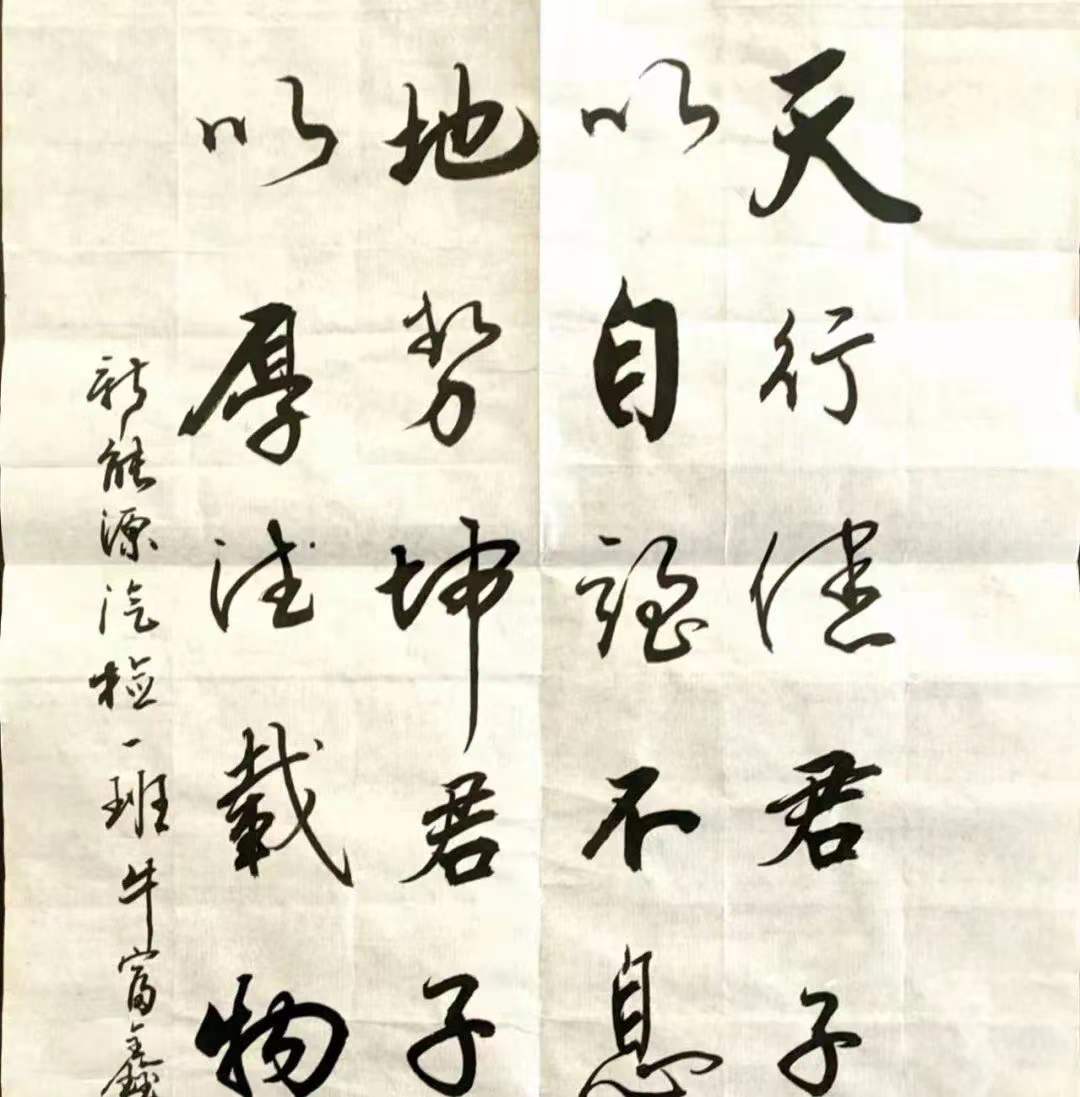 天行健君子
以自强不息
地势坤君子
以厚德载物
新能源汽检一班牛富鑫